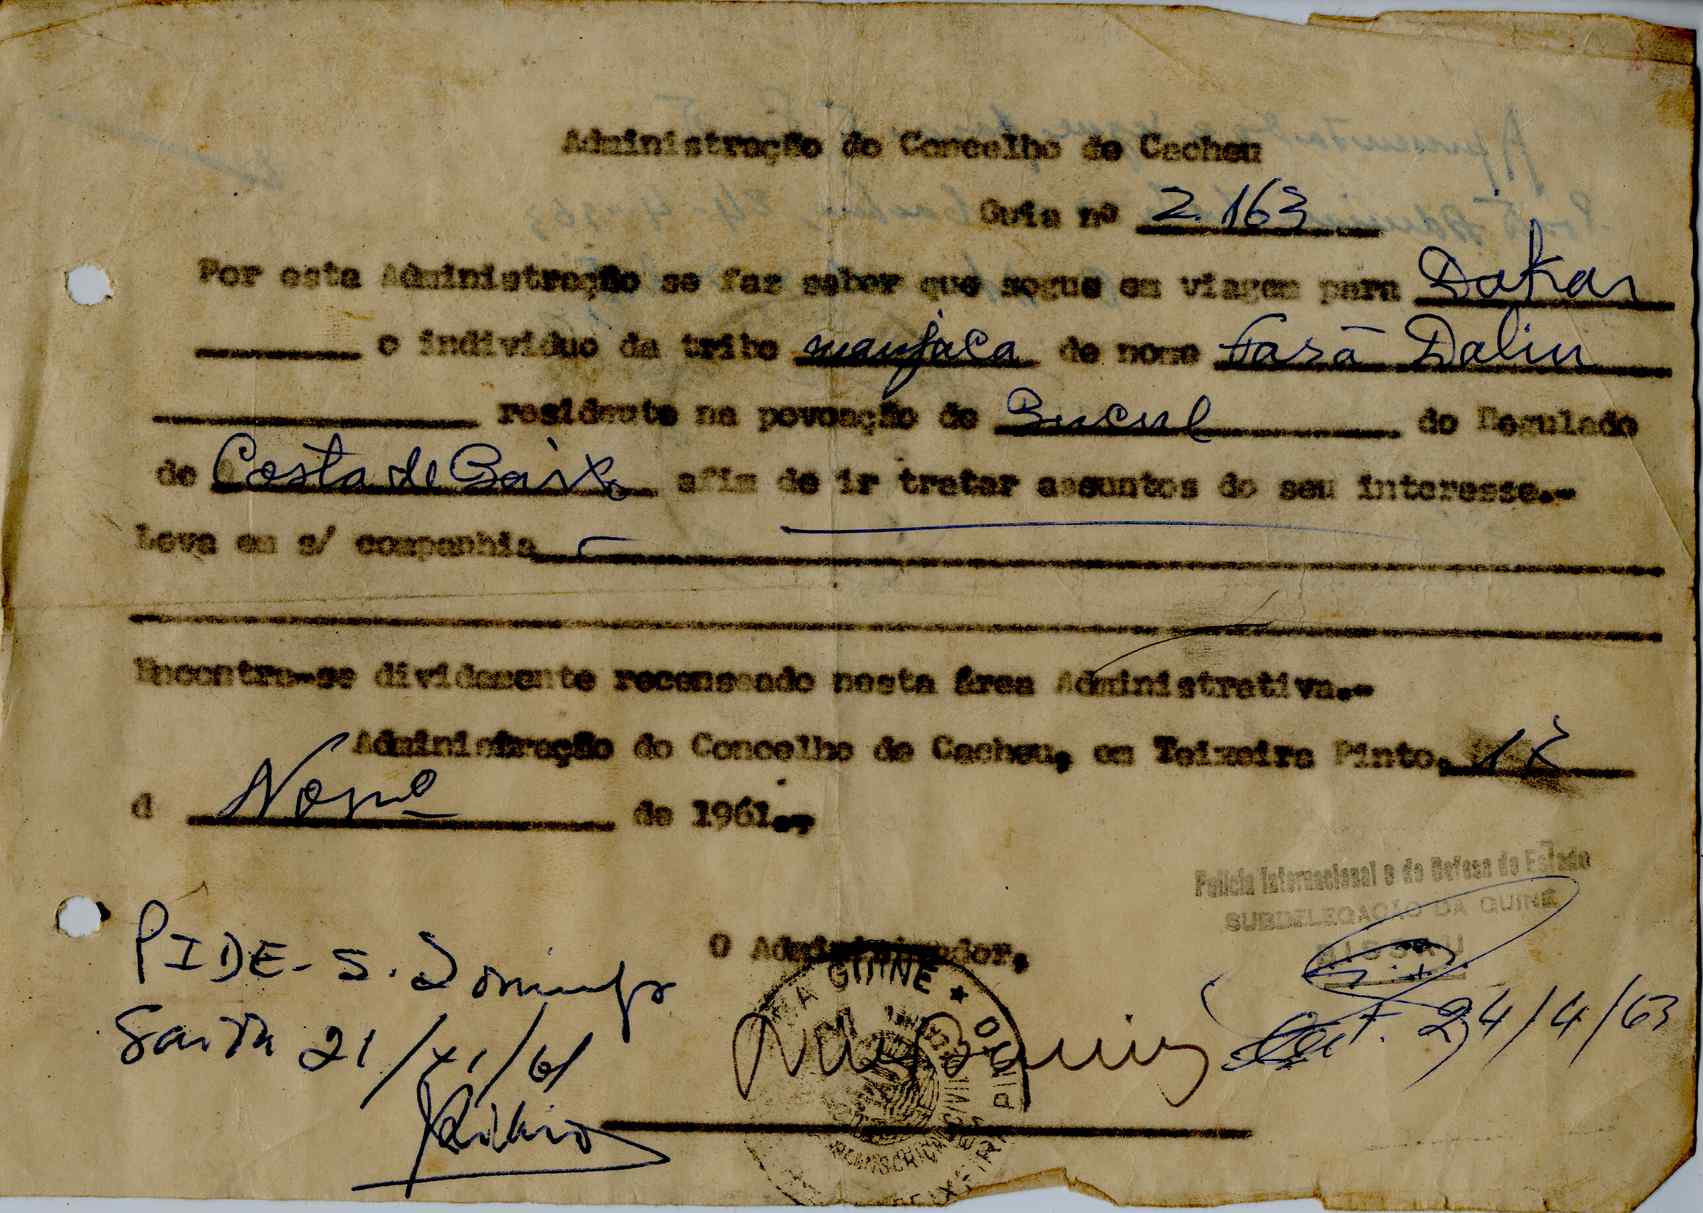 Administração do Concelho de Cacheu
Guia nº 2.163
Por esta Administração se faz saber que segue em viagem para Dakar
o individuo da tribo manjaca de nome Dalin
residente na povoação de Bucul do Regulado
de Costa de Baixo afim de ir tratar assuntos do seu interesse.-
Leva em s/ companhia
Encontra-se dividamente recenseado nesta área Administrativa.-
Administração do Concelho de Cacheu, em Teixeira Pinto, 17
d Novº de 1961.-
Policia Internacional e de Defesa do Estado
SUBDELEGAÇÃO DA GUINÉ
BISSAU
O Administrador,
GUINÉ
PIDE - S. Domingos
Saída 21/XI/61
Ent. 24/4/63